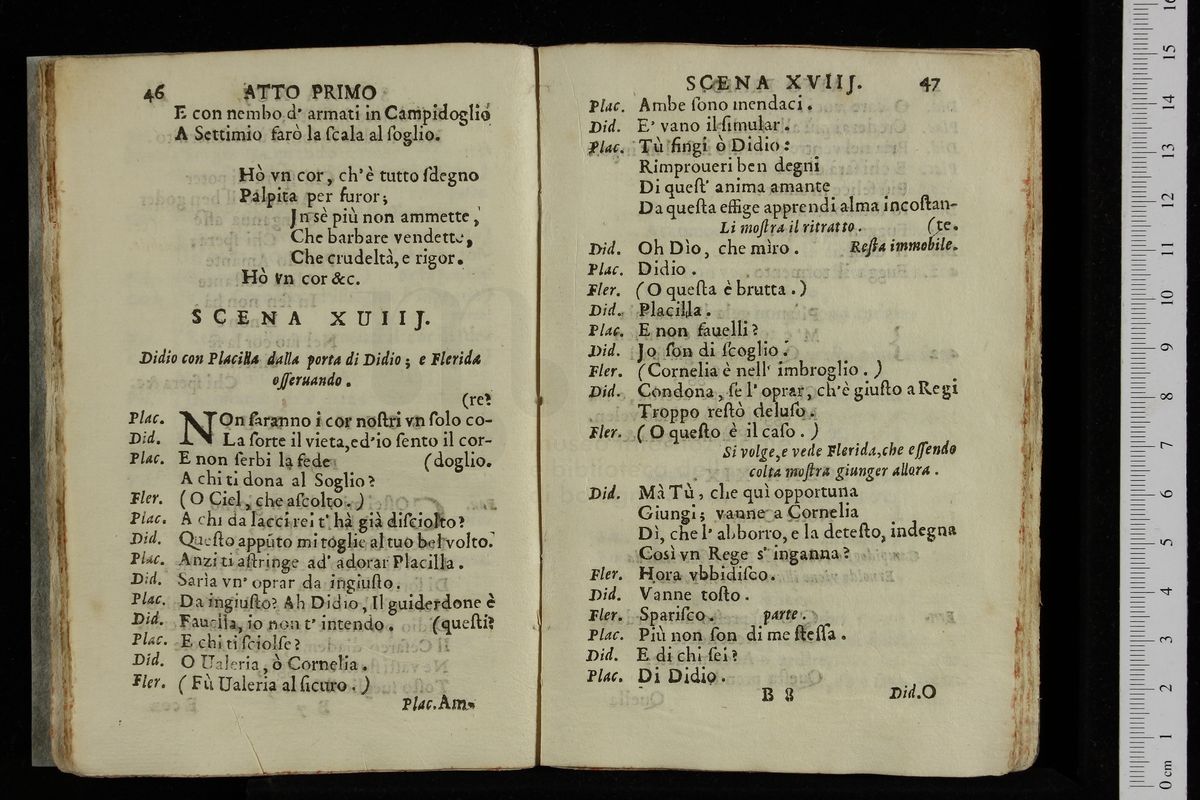 46 ATTO PRIMO
E con nembo d' armati in Campidoglio
A Settimio farò la ſcala al ſoglio.
Hò vn cor, ch'è tutto ſdegno
Palpita per furor;
Jn sè più non ammette,
Che barbare vendette,
Che crudeltà, e rigor.
Hò vn cor &c.
SCENA XUIIJ.
Didio con Placilla dalla porta di Didio; e Flerida
oſſeruando.
(re?
Plac. NOn ſaranno i cor noſtri vn ſolo co-
Did. La ſorte il vieta, ed'io ſento il cor-
Plac. E non ſerbi la fede (doglio.
A chi ti dona al Soglio?
Fler. (O Ciel, che aſcolto.)
Plac. A chi da lacci rei t' hà già diſciolto?
Did. Queſto appũto mi toglie al tuo bel volto.
Plac. Anzi ti aſtringe ad' adorar Placilla.
Did. Sarìa vn' oprar da ingiuſto.
Plac. Da ingiuſto? Ah Didio, Il guiderdone è
Did. Fauella, io non t' intendo. (queſti?
Plac. E chi ti ſciolſe?
Did. O Ualeria, ò Cornelia.
Fler. (Fù Ualeria al ſicuro.)
Plac. Am-
SCENA XVIIJ. 47
Plac. Ambe ſono mendaci.
Did. E' vano il ſimular.
Plac. Tù fingi ò Didio:
Rimproueri ben degni
Di queſt' anima amante
Da queſta effige apprendi alma incoſtan-
Li moſtra il ritratto. (te.
Did. Oh Dìo, che mìro. Reſta immobile.
Plac. Didio.
Fler. (O queſta è brutta.)
Did. Placilla.
Plac. E non fauelli?
Did. Jo ſon di ſcoglio.
Fler. (Cornelia è nell' imbroglio.)
Did. Condona, ſe l' oprar, ch'è giuſto a Regi
Troppo reſtò deluſo.
Fler. (O queſto è il caſo.)
Si volge, e vede Flerida, che eſſendo
colta moſtra giunger allora.
Did. Mà Tù, che quì opportuna
Giungi; vanne a Cornelia
Dì, che l' abborro, e la deteſto, indegna
Così vn Rege s' inganna?
Fler. Hora vbbidiſco.
Did. Vanne toſto.
Fler. Spariſco. parte.
Plac. Più non ſon di me ſteſſa.
Did. E di chi ſei?
Plac. Di Didio.
B 8 Did. O
0 cm 1 2 3 4 5 6 7 8 9 10 11 12 13 14 15 16